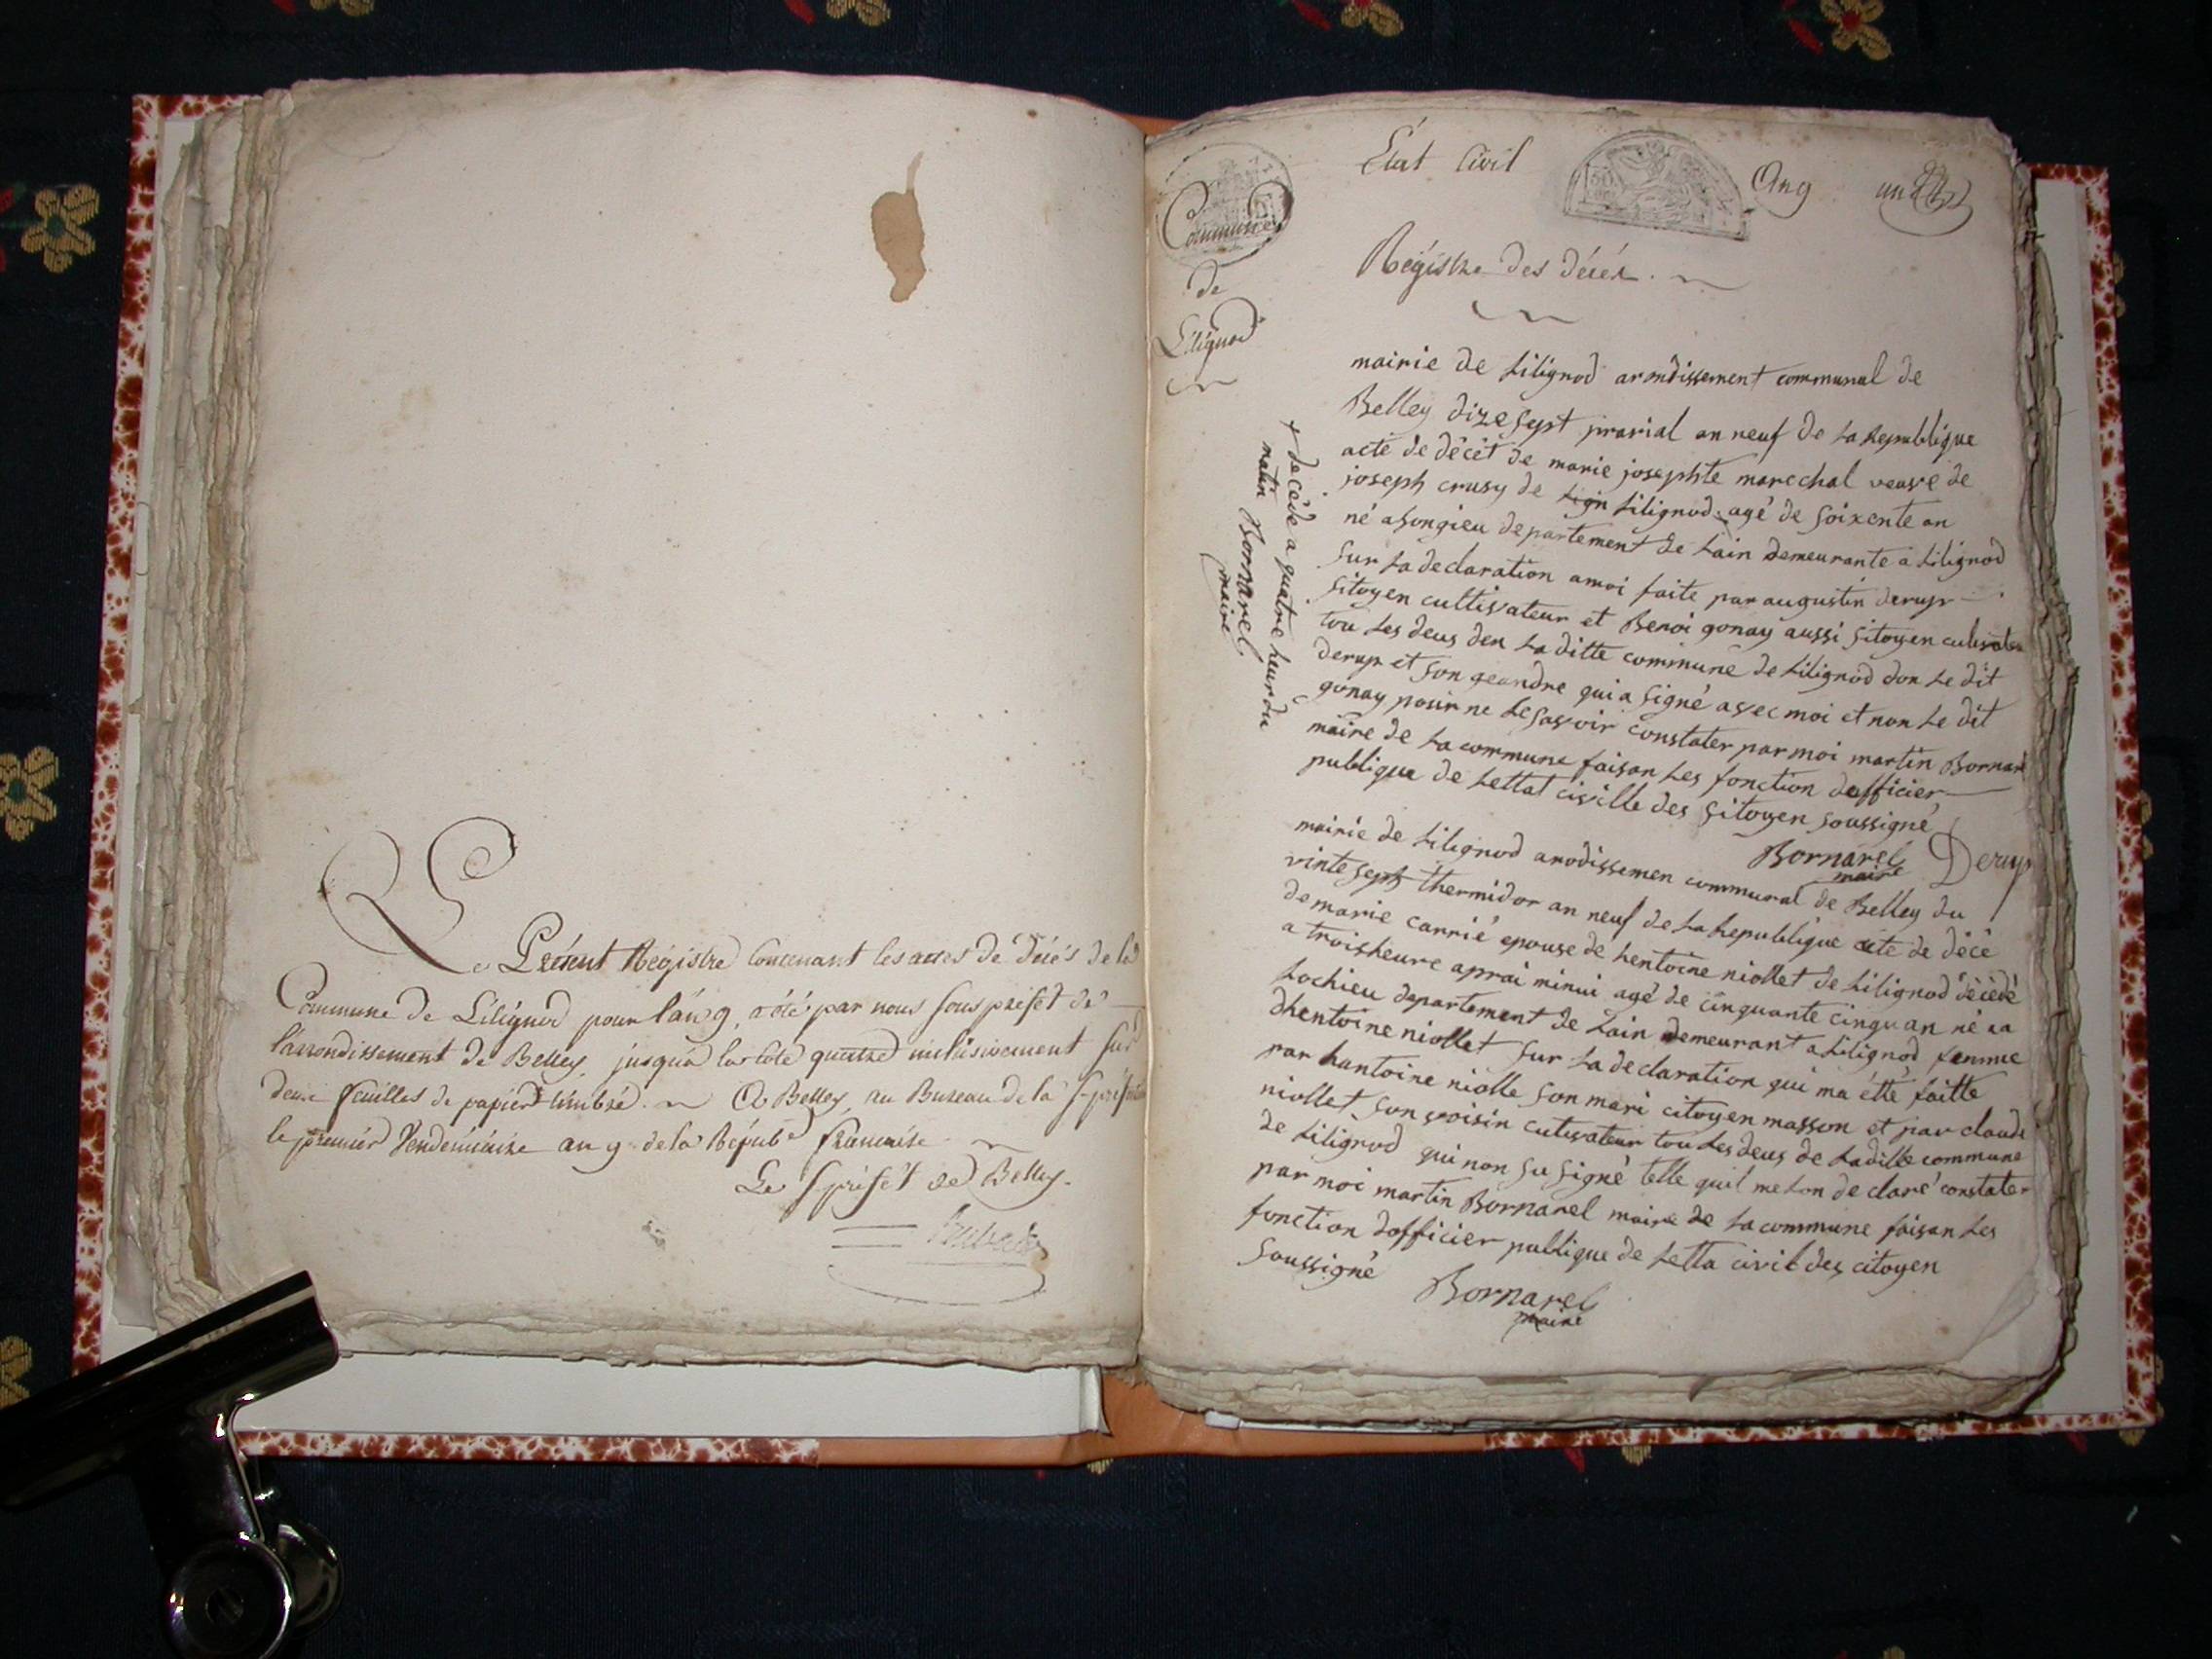 Le Présent Régistre Contenant les actes de Décés de la
Commune de Lilignod pour l'an 9, a été par nous sous préfet de
l'arrondissement de Belley, jusqu'à la cote quatre inclusivement sur
deux feuilles de papier timbré. A Belley, au Bureau de la S-préfecture
le premier Vendémiaire an 9 de la Répub. française
Le S-préfet de Belley.
Commune
de
Lilignod
Etat Civil
An 9
un
Régistre des décés.
mairie de Lilignod arondissement communal de
Belley dize sept prarial an neuf de La Republique
acte de décét de marie josephte marechal veuve de
joseph crusy de Lign Lilignod x agé de soixente an
né a songieu departement de Lain demeurante a Lilignod
sur La declaration amoi faite par augustin derup
sitoyen cultivateur et Benoi gonay aussi sitoyen cultivateur
tou Les deus den La ditte commune de Lilignod don Le dit
derup et son geandre qui a signé avec moi et non Le dit
gonay pour ne Le savoir constater par moi martin Bornarel
maire de La commune faisan Les fonction dofficier
publique de Lettat civille des sitoyen soussigné
Bornarel Derup
maire
x decéde a quatre heur du
matin Bornarel
maire
mairie de Lilignod arodissemen communal de Belley du
vinte sept thermidor an neuf de La Republique acte de décé
de marie carrié epouse de hentoine niollet de Lilignod décédé
a troisheure aprai minui agé de cinquante cinq an né a
Lochieu departement de Lain demeurant a Lilignod femme
dhentoine niollet sur La declaration qui ma étté faitte
par hantoine niolle son mari citoyen masson et par claude
niollet son voisin cutivateur tou Les deus de Laditte commune
de Lilignod qui non su signé telle quil me Lon declaré constater
par moi martin Bornarel maire de La commune faisan Les
fonction dofficier publique de Letta civil des citoyen
soussigné
Bornarel
maire